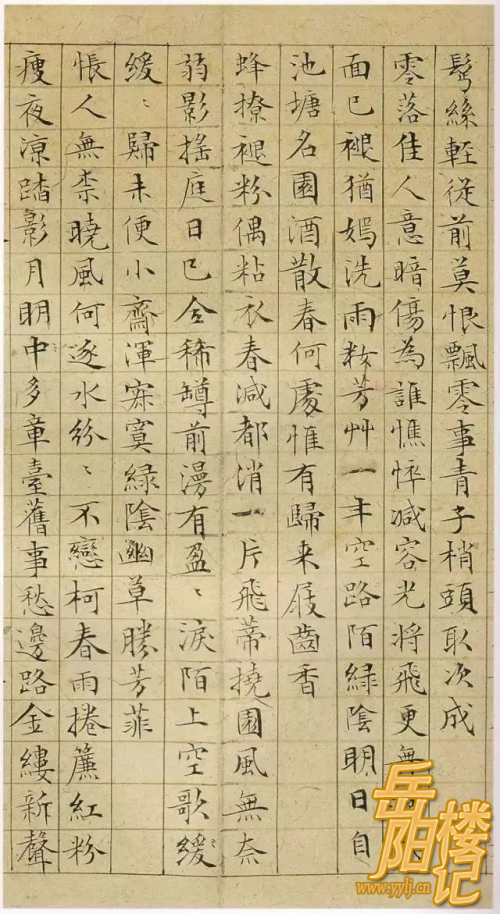 鬓絲輕從前莫恨飄零事青子梢頭取次成
零落佳人意暗傷為誰憔悴减容光將飛更無
面已褪猶嫣洗雨粧芳艸一年空路陌綠陰明日自
池塘名園酒散春何處惟有歸来屐齒香
蜂撩褪粉偶粘衣春减都消一片飛蒂撓園風無奈
弱影搖庭日已全稀罇前漫有盈〻淚陌上空歌緩
緩〻歸未便小齋渾寂寞綠陰幽草勝芳菲
悵人無柰曉風何逐水紛〻不戀柯春雨捲簾紅粉
瘦夜凉踏影月明中多章臺舊事愁邊路金縷新聲
岳阳楼记
www.yylj.cn